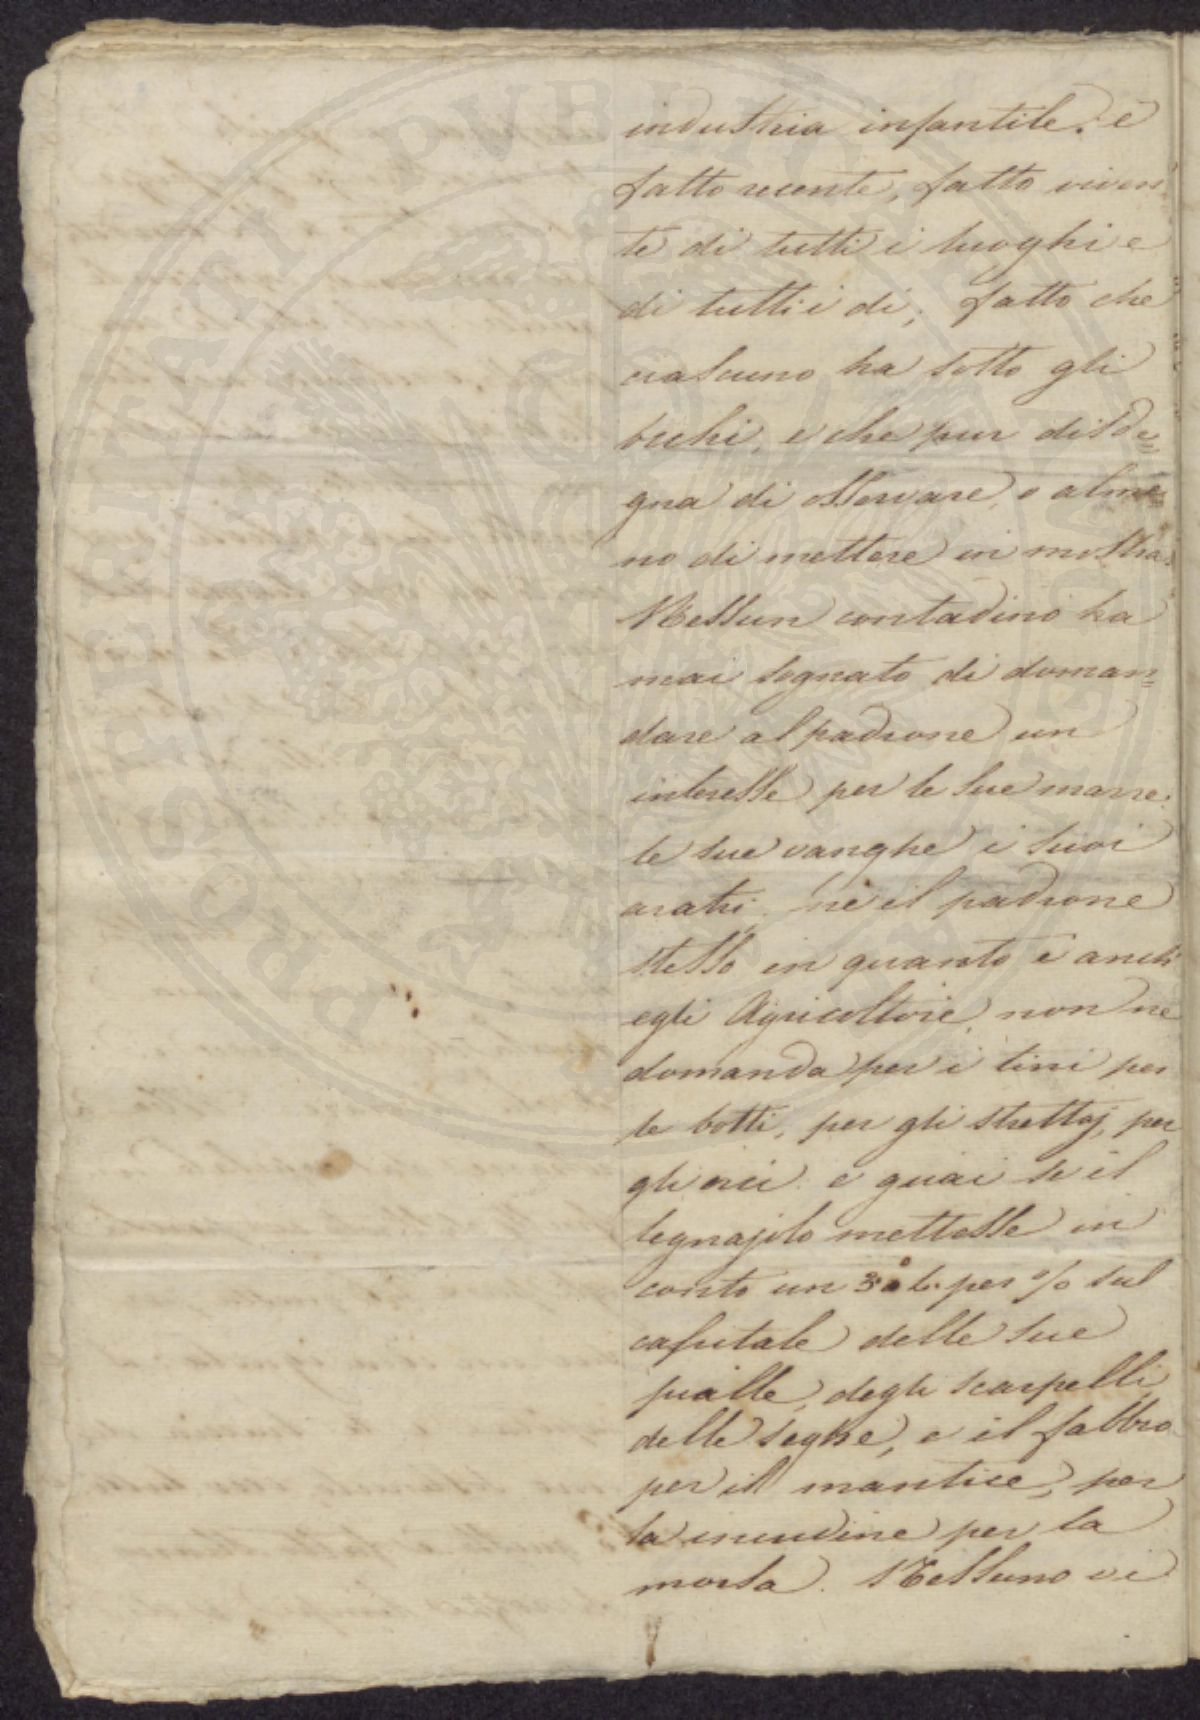 industria infantile. è
fatto recente, fatto viven
te di tutti i luoghi e
di tutti i dì; fatto che
ciascuno ha sotto gli
occhi, e che pur disde=
gna di osservare, o alme
no di mettere in mostra.
Nessun contadino ha
mai sognato di doman=
dare al padrone un
interesse per le sue marre.
le sue vanghe i suoi
aratri, nè il padrone
stesso in quanto è anch'
egli Agricoltore, non ne
domanda per i tini per
le botti, per gli strettoj, per
gli orci. e guai se il
legnajolo mettesse in
conto un per % sul
capitale delle sue
pialle, degli scarpelli
delle seghe, e il fabbro
per il mantice, per
la incudine per la
morsa. Nessuno vi
PROSPERITATI PVBLICAE AVGENDAE